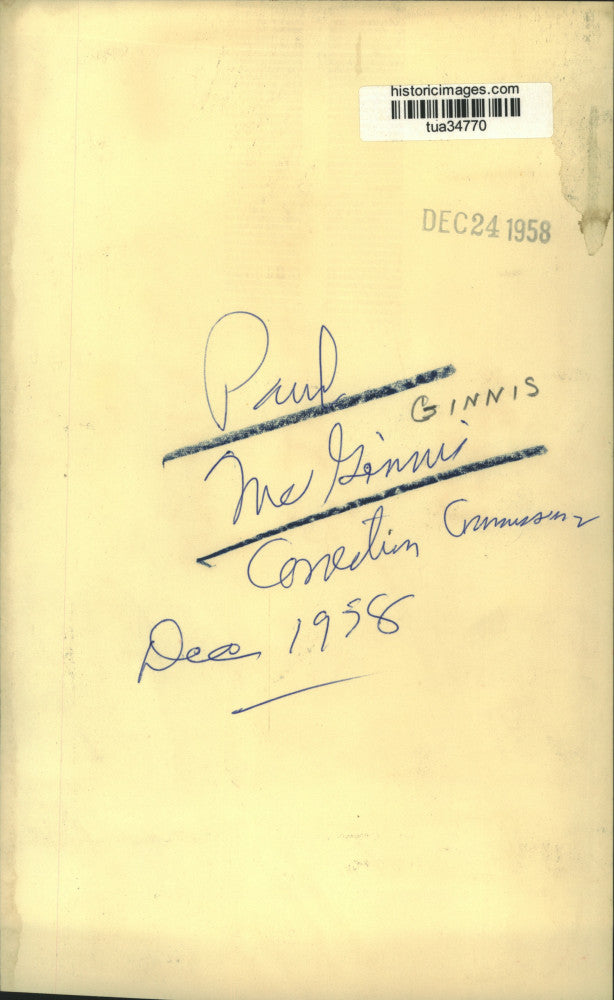 historicimages.com
tua34770
DEC 24 1958
Paul
GINNIS
McGinnis
Correction Commissioner
Dec 1958